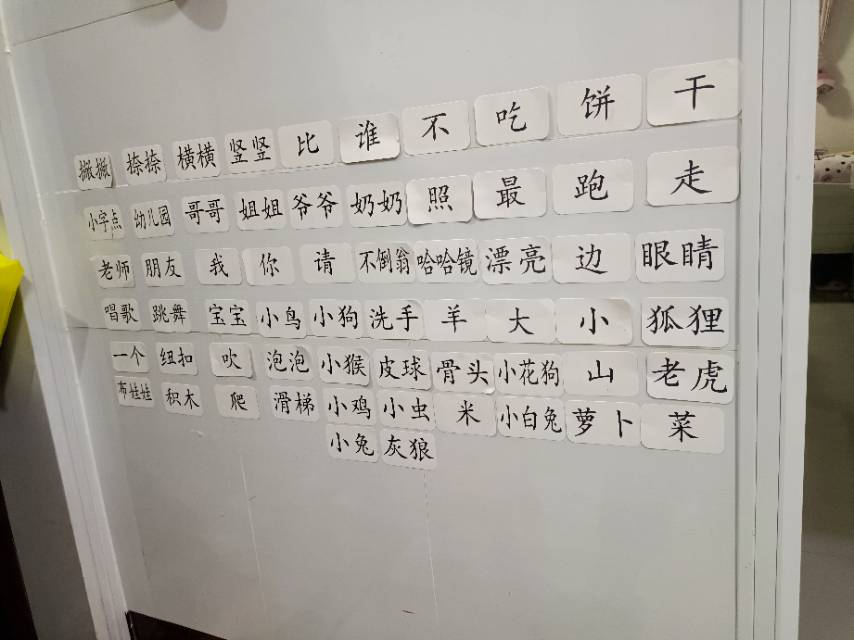 撇撇 捺捺 横横 竖竖 比 谁 不 吃 饼 干
小字点 幼儿园 哥哥 姐姐 爷爷 奶奶 照 最 跑 走
老师 朋友 我 你 请 不倒翁 哈哈镜 漂亮 边 眼睛
唱歌 跳舞 宝宝 小鸟 小狗 洗手 羊 大 小 狐狸
一个 纽扣 吹 泡泡 小猴 皮球 骨头 小花狗 山 老虎
布娃娃 积木 爬 滑梯 小鸡 小虫 米 小白兔 萝卜 菜
小兔 灰狼